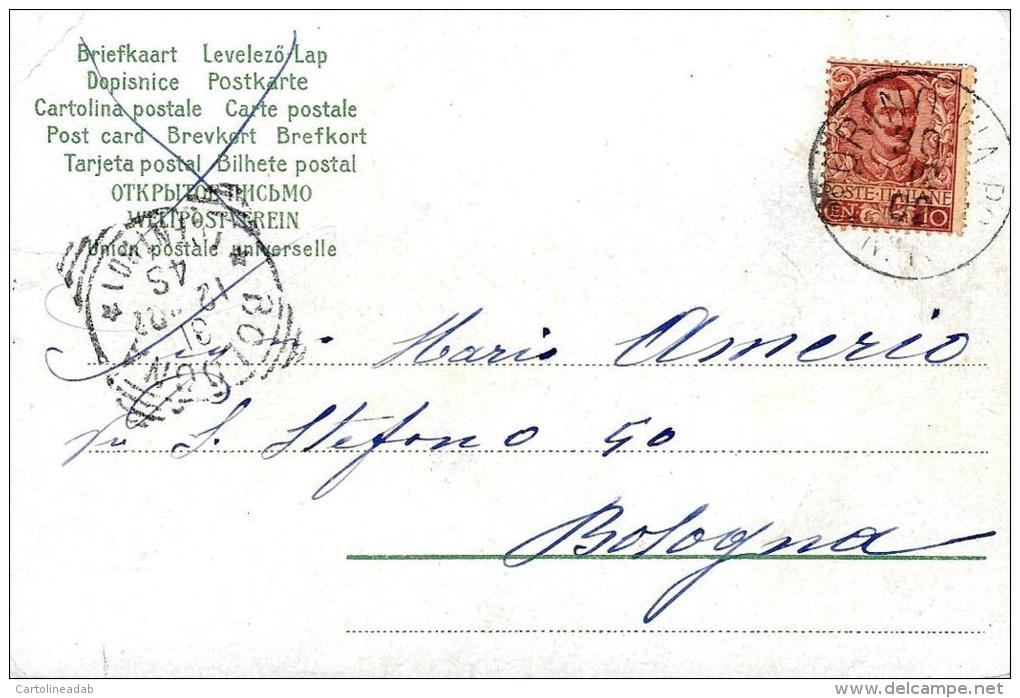 Briefkaart Levelező-Lap
Dopisnice Postkarte
Cartolina postale Carte postale
Post card Brevkort Brefkort
Tarjeta postal Bilhete postal
ОТКРЫТОЕ ПИСЬМО
WELTPOSTVEREIN
Union postale universelle
POSTE ITALIANE
CENT. 10
Mario Amerio
S. Stefano 50
Bologna
© Cartolineadab
www.delcampe.net